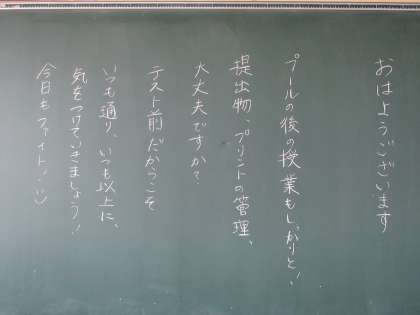 おはようございます
プールの後の授業もしっかりと!
提出物、プリントの管理、
大丈夫ですか?
テスト前だからこそ
いつも通り、いつも以上に、
気をつけていきましょう!
今日もファイト!:)